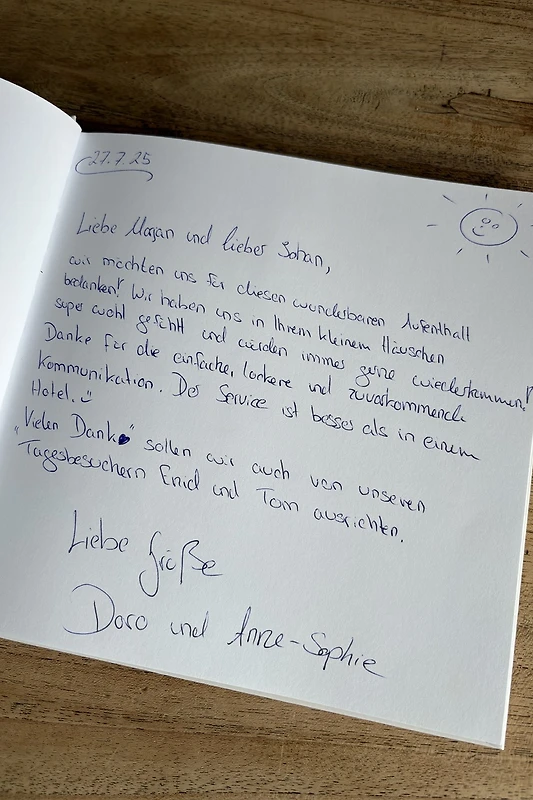 27.7.25
Liebe Megan und lieber Johan,
wir möchten uns für diesen wunderbaren Aufenthalt
bedanken! Wir haben uns in Ihrem kleinem Häuschen
super wohl gefühlt und würden immer gerne wiederkommen!
Danke für die einfache, lockere und zuvorkommende
Kommunikation. Der Service ist besser als in einem
Hotel.
„Vielen Dank“ sollen wir auch von unseren
Tagesbesuchern Enid und Tom ausrichten.
Liebe Grüße
Doro und Anne-Sophie